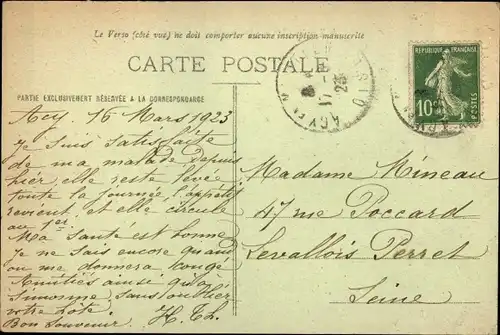 Le Verso (côté vue) ne doit comporter aucune inscription manuscrite
CARTE POSTALE
PARTIE EXCLUSIVEMENT RÉSERVÉE A LA CORRESPONDANCE
Acy. 16 Mars 1923
Je Suis Satisfaite
de ma malade depuis
hier elle reste levée
toute la journée l'appétit
revient et elle circule
au 1er
Ma Santé est bonne
je ne sais encore quand
on me donnera congé
Amitiés ainsi qu'à
Simonne Sans oublier
votre Lolo
Bon Souvenir H. Th.
Madame Mineau
47 rue Poccard
Levallois Perret
Seine
ACY EN M
OISE
17
23
RÉPUBLIQUE FRANÇAISE
10c
POSTES